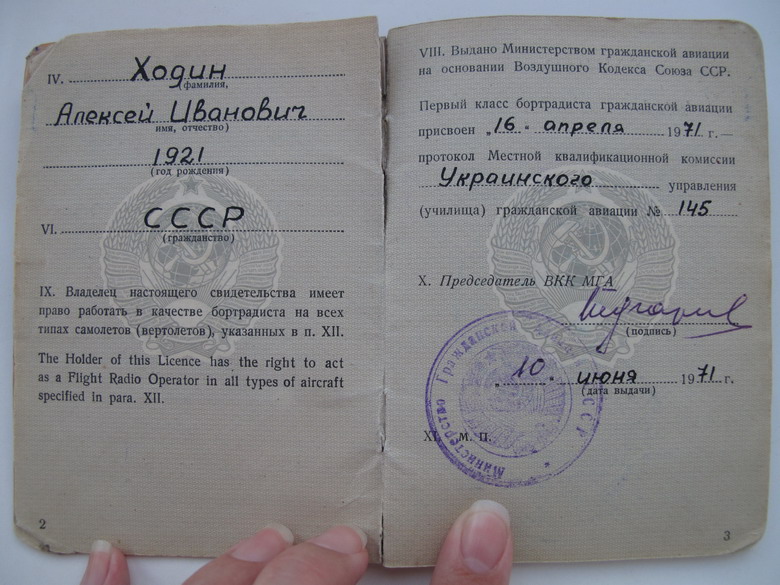 IV. Ходин
(фамилия,
Алексей Иванович
имя, отчество)
1921
(год рождения)
VI. СССР
(гражданство)
IX. Владелец настоящего свидетельства имеет
право работать в качестве бортрадиста на всех
типах самолетов (вертолетов), указанных в п. XII.
The Holder of this Licence has the right to act
as a Flight Radio Operator in all types of aircraft
specified in para. XII.
2
VIII. Выдано Министерством гражданской авиации
на основании Воздушного Кодекса Союза ССР.
Первый класс бортрадиста гражданской авиации
присвоен „16" апреля 1971 г.—
протокол Местной квалификационной комиссии
Украинского управления
(училища) гражданской авиации № 145
X. Председатель ВКК МГА
(подпись)
„10" июня 1971 г.
(дата выдачи)
XI. М. П.
Министерство Гражданской СССР
3